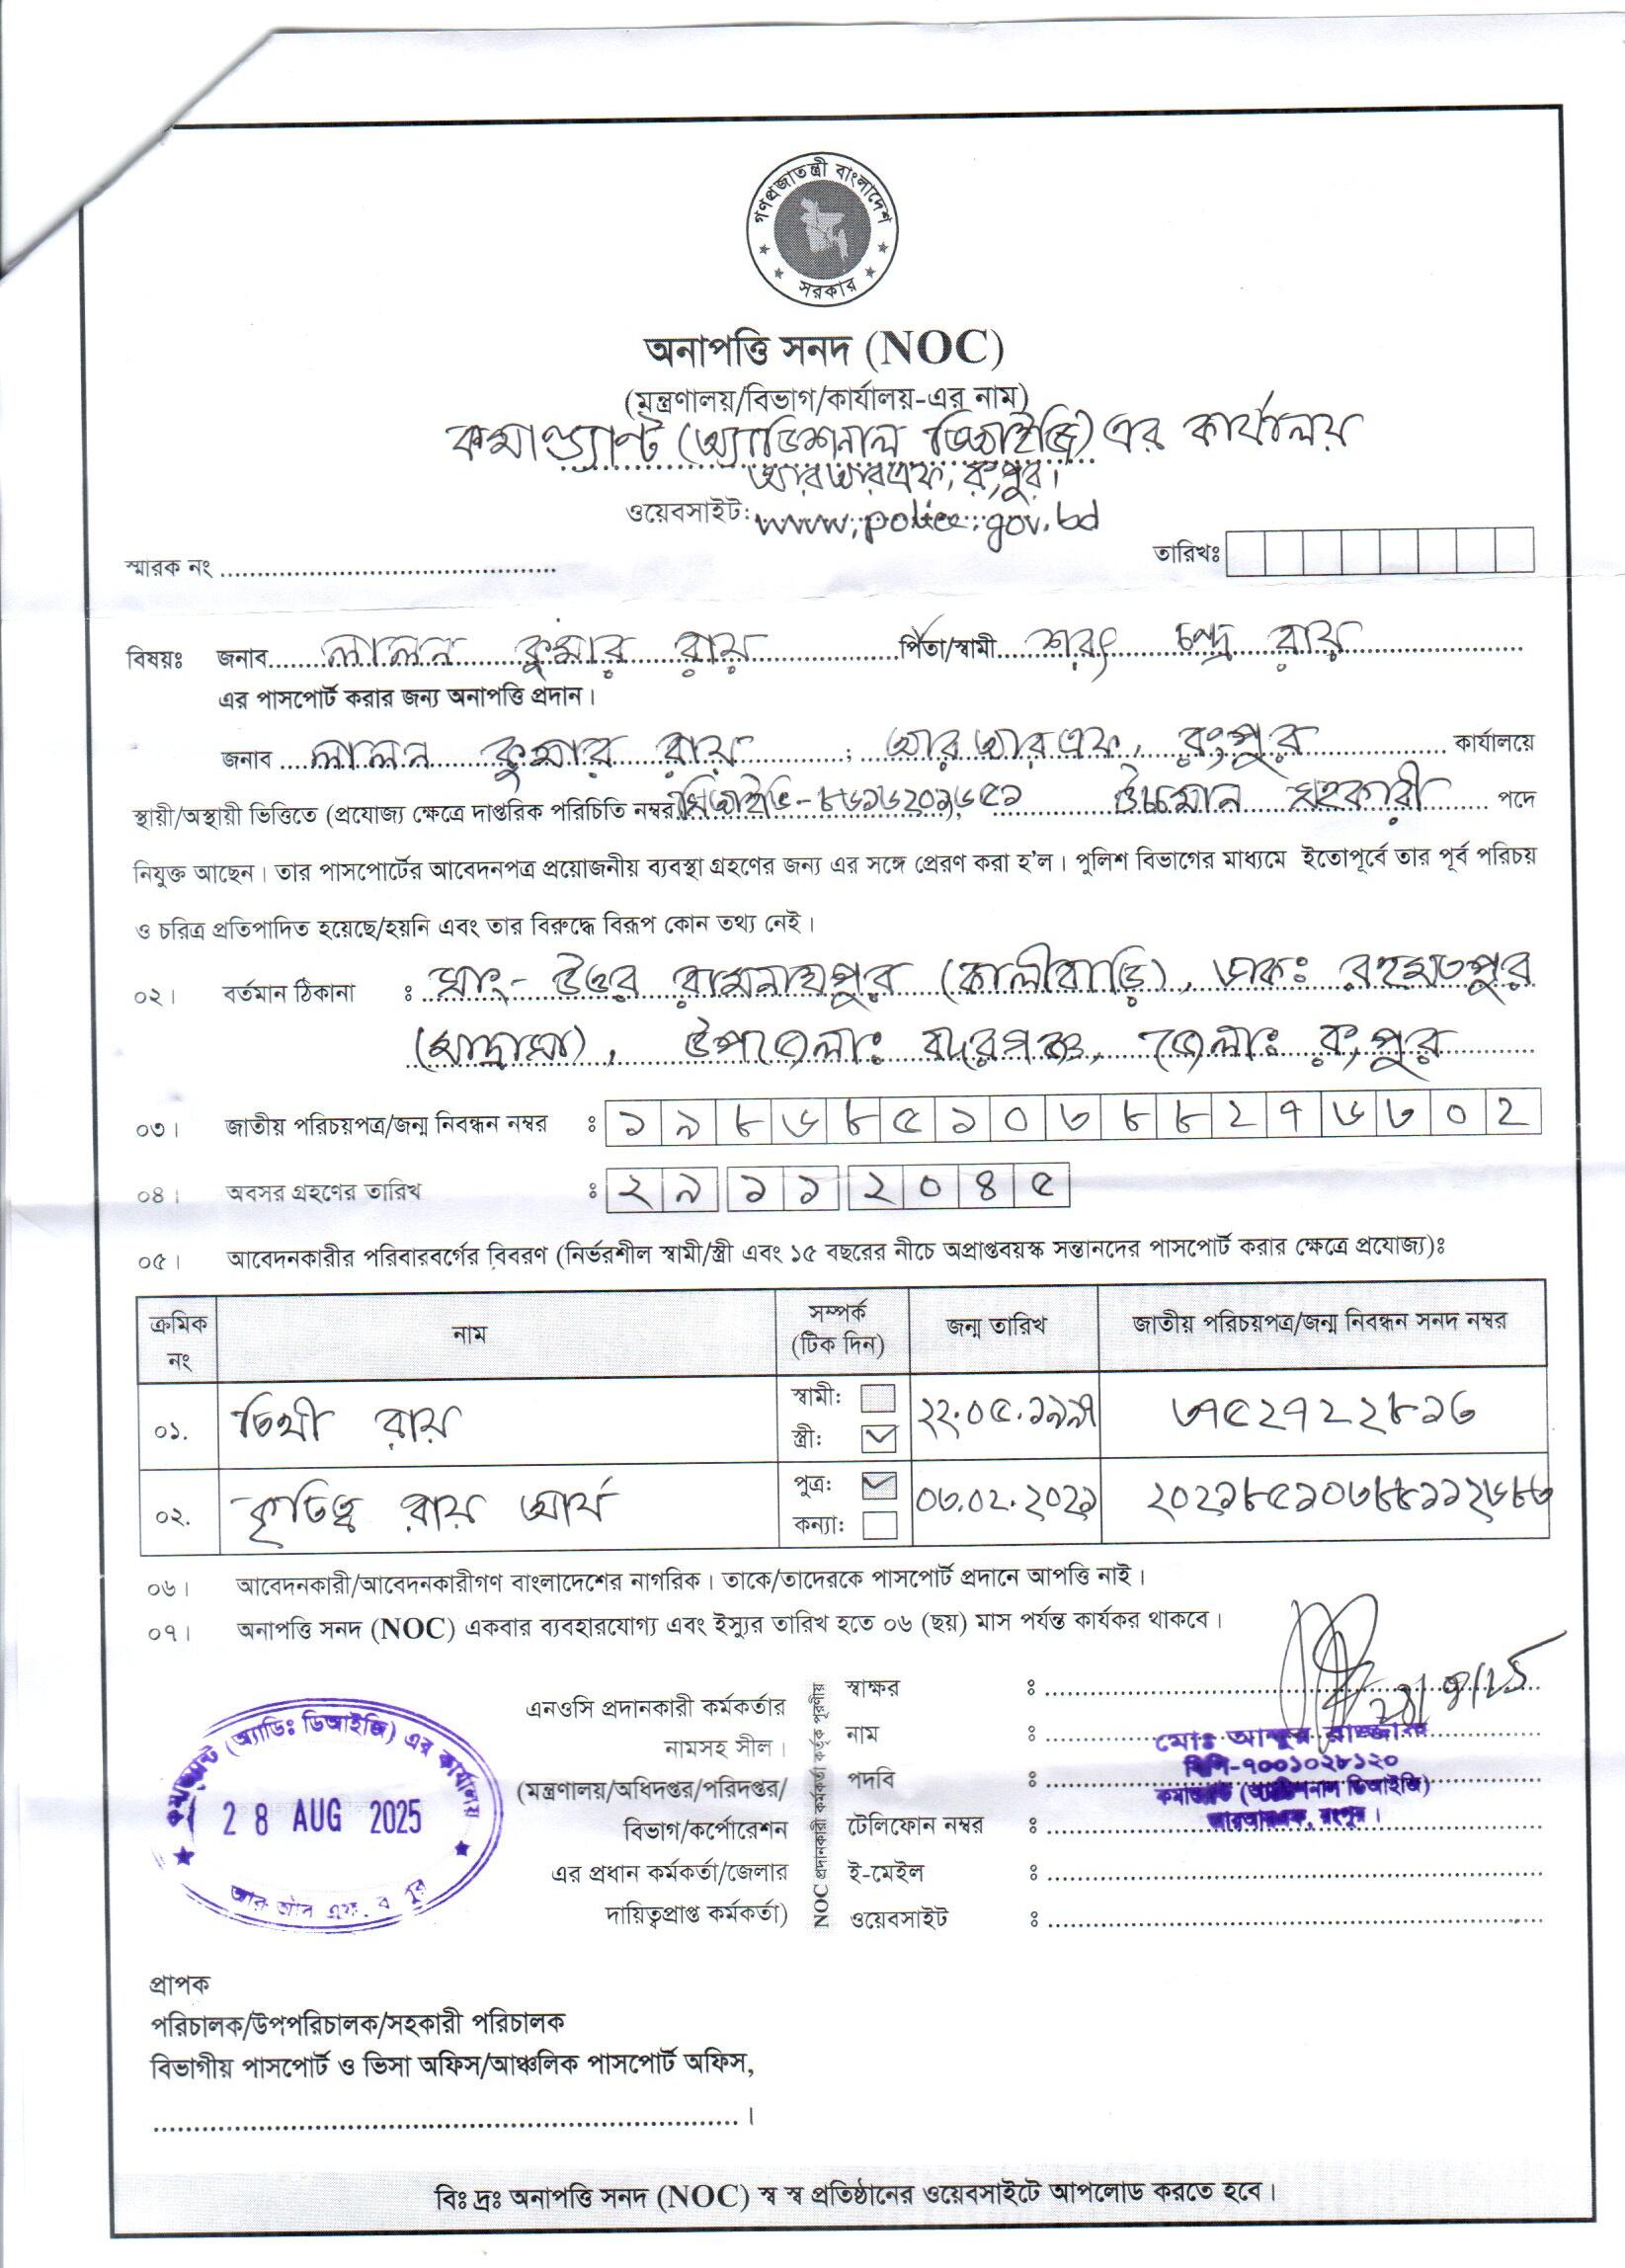 গণপ্রজাতন্ত্রী বাংলাদেশ
সরকার
অনাপত্তি সনদ (NOC)
(মন্ত্রণালয়/বিভাগ/কার্যালয়-এর নাম)
কমান্ড্যান্ট (অ্যাডিশনাল ডিআইজি) এর কার্যালয়
আরআরএফ, রংপুর।
ওয়েবসাইট: www.police.gov.bd
স্মারক নং
তারিখঃ
বিষয়ঃ জনাব লালন কুমার রায় পিতা/স্বামী শরৎ চন্দ্র রায়
এর পাসপোর্ট করার জন্য অনাপত্তি প্রদান।
জনাব লালন কুমার রায় ; আরআরএফ, রংপুর কার্যালয়ে
স্থায়ী/অস্থায়ী ভিত্তিতে (প্রযোজ্য ক্ষেত্রে দাপ্তরিক পরিচিতি নম্বর উচ্চমান সহকারী পদে
নিযুক্ত আছেন। তার পাসপোর্টের আবেদনপত্র প্রয়োজনীয় ব্যবস্থা গ্রহণের জন্য এর সঙ্গে প্রেরণ করা হ'ল। পুলিশ বিভাগের মাধ্যমে ইতোপূর্বে তার পূর্ব পরিচয়
ও চরিত্র প্রতিপাদিত হয়েছে/হয়নি এবং তার বিরুদ্ধে বিরূপ কোন তথ্য নেই।
০২। বর্তমান ঠিকানা : সাং- উত্তর রামনাথপুর (কালীবাড়ি), ডাকঃ রহমতপুর
(মাদ্রাসা), উপজেলাঃ বদরগঞ্জ, জেলাঃ রংপুর
০৩। জাতীয় পরিচয়পত্র/জন্ম নিবন্ধন নম্বর : ১৯৮৬৮৫১০৩৮৮২৭৬৩০২
০৪। অবসর গ্রহণের তারিখ : ২৯ ১১ ২০৪৫
০৫। আবেদনকারীর পরিবারবর্গের বিবরণ (নির্ভরশীল স্বামী/স্ত্রী এবং ১৫ বছরের নীচে অপ্রাপ্তবয়স্ক সন্তানদের পাসপোর্ট করার ক্ষেত্রে প্রযোজ্য)ঃ
ক্রমিক নং নাম সম্পর্ক (টিক দিন) জন্ম তারিখ জাতীয় পরিচয়পত্র/জন্ম নিবন্ধন সনদ নম্বর
০১. তিথী রায় স্বামী: স্ত্রী: ✓ ২২.০৫.১৯৯৭
০২. কৃতিত্ব রায় আর্য পুত্র: ✓ কন্যা: ০৩.০২.২০২১ ২০২১৮৫১০৩৮৮১১২৬৮৩
০৬। আবেদনকারী/আবেদনকারীগণ বাংলাদেশের নাগরিক। তাকে/তাদেরকে পাসপোর্ট প্রদানে আপত্তি নাই।
০৭। অনাপত্তি সনদ (NOC) একবার ব্যবহারযোগ্য এবং ইস্যুর তারিখ হতে ০৬ (ছয়) মাস পর্যন্ত কার্যকর থাকবে।
কমান্ড্যান্ট (অ্যাডিঃ ডিআইজি) এর কার্যালয়
28 AUG 2025
এনওসি প্রদানকারী কর্মকর্তার
নামসহ সীল।
(মন্ত্রণালয়/অধিদপ্তর/পরিদপ্তর/
বিভাগ/কর্পোরেশন
এর প্রধান কর্মকর্তা/জেলার
দায়িত্বপ্রাপ্ত কর্মকর্তা)
NOC প্রদানকারী কর্মকর্তা কর্তৃক পূরণীয়
স্বাক্ষর :
নাম : মোঃ আব্দুর রাজ্জাক
বিপি-৭০০১০২৮১২০
পদবি : কমান্ড্যান্ট (অ্যাডিশনাল ডিআইজি)
টেলিফোন নম্বর : আরআরএফ, রংপুর।
ই-মেইল :
ওয়েবসাইট :
প্রাপক
পরিচালক/উপপরিচালক/সহকারী পরিচালক
বিভাগীয় পাসপোর্ট ও ভিসা অফিস/আঞ্চলিক পাসপোর্ট অফিস,
।
বিঃ দ্রঃ অনাপত্তি সনদ (NOC) স্ব স্ব প্রতিষ্ঠানের ওয়েবসাইটে আপলোড করতে হবে।